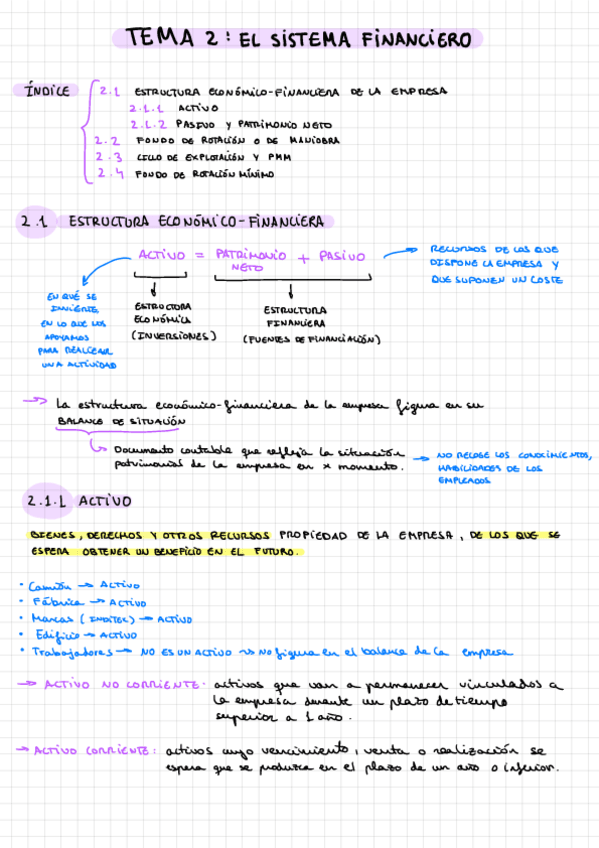 TEMA 2: EL SISTEMA FINANCIERO
ÍNDICE
2.1 ESTRUCTURA ECONÓMICO-FINANCIERA DE LA EMPRESA
2.1.1 ACTIVO
2.1.2 PASIVO Y PATRIMONIO NETO
2.2 FONDO DE ROTACIÓN O DE MANIOBRA
2.3 CICLO DE EXPLOTACIÓN Y PMM
2.4 FONDO DE ROTACIÓN MÍNIMO
2.1 ESTRUCTURA ECONÓMICO-FINANCIERA
ACTIVO = PATRIMONIO NETO + PASIVO
RECURSOS DE LOS QUE
DISPONE LA EMPRESA Y
QUE SUPONEN UN COSTE
EN QUÉ SE
INVIERTE,
EN LO QUE NOS
APOYAMOS
PARA REALIZAR
UNA ACTIVIDAD
ESTRUCTURA
ECONÓMICA
(INVERSIONES)
ESTRUCTURA
FINANCIERA
(FUENTES DE FINANCIACIÓN)
La estructura económico-financiera de la empresa figura en su
BALANCE DE SITUACIÓN
Documento contable que refleja la situación
patrimonial de la empresa en x momento.
NO RECOGE LOS CONOCIMIENTOS,
HABILIDADES DE LOS
EMPLEADOS
2.1.1 ACTIVO
BIENES, DERECHOS Y OTROS RECURSOS PROPIEDAD DE LA EMPRESA, DE LOS QUE SE
ESPERA OBTENER UN BENEFICIO EN EL FUTURO.
• Camión → ACTIVO
• Fábrica → ACTIVO
• Marcas (INDITEX) → ACTIVO
• Edificio → ACTIVO
• Trabajadores → NO ES UN ACTIVO → No figura en el balance de la empresa
→ ACTIVO NO CORRIENTE: activos que van a permanecer vinculados a
la empresa durante un plazo de tiempo
superior a 1 año.
→ ACTIVO CORRIENTE: activos cuyo vencimiento, venta o realización se
espera que se produzca en el plazo de un año o inferior.